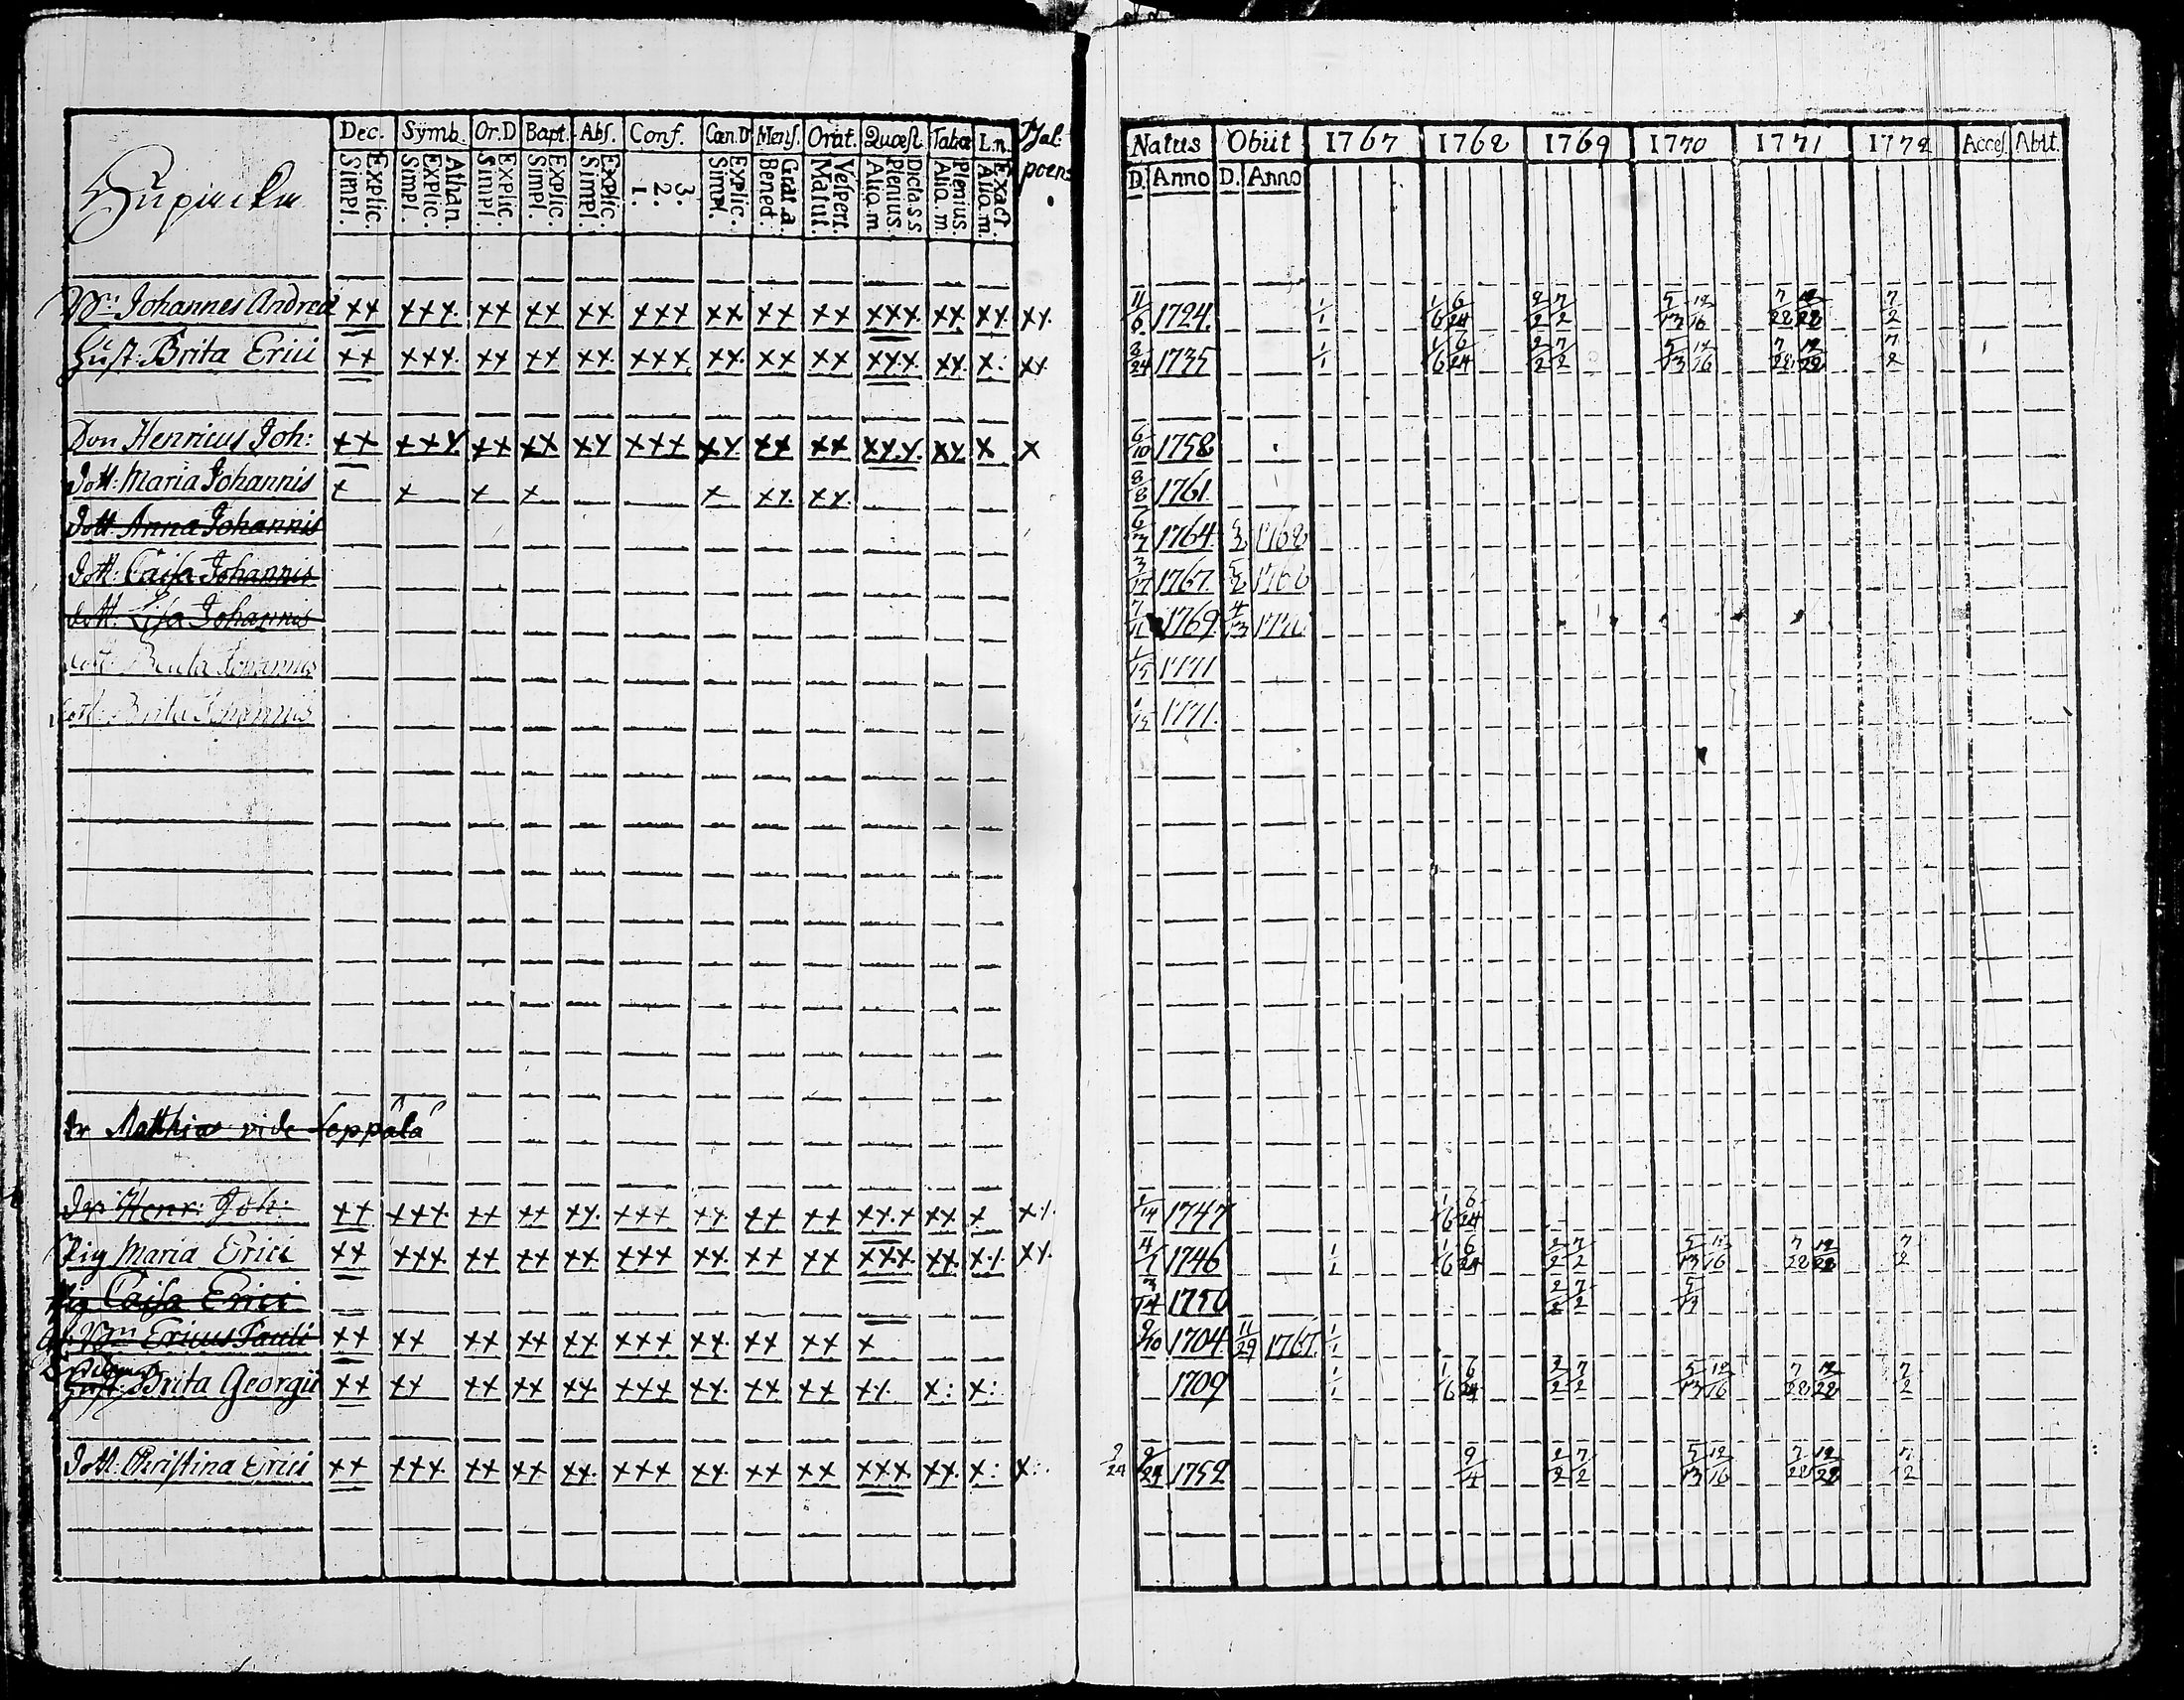 Dec. Symb. Or.D Bapt. Abs. Conf. Cœn.D Mens. Orat. Quæst. Tabæ L.n. Psal: Natus Obiit 1767 1768 1769 1770 1771 1772 Acces. Abit.
Explic. Simpl. Athan. Explic. Simpl. Explic. Simpl. Explic. Simpl. Explic. Simpl. 3. 2. 1. Explic. Simpl. Grat.a. Bened. Vespert. Matut. Dicta s.s Plenius. Aliq.m Plenius Aliq.m Exact. Aliq.m. poen: D. Anno D. Anno
Johannes Andreæ xx xxx xx xx xx xxx xx xx xx xxx xx xx xx 11/6 1724 1/1 1/6 6/24 2/2 7/2 5/13 12/16 7/28 12/28 7/2
Hust. Brita Erici xx xxx xx xx xx xxx xx xx xx xxx xx x: xx 8/24 1735 1/1 1/6 6/24 2/2 7/2 5/13 12/16 7/28 12/28 7/2
Son Henricus Joh: xx xxx xx xx xx xxx xx xx xx xxx xx x x 6/10 1758
Dott: Maria Johannis x x x x x xx xx 8/8 1761
Dott. Anna Johannis 1764 1768
Dott. Caisa Johannis 3/17 1767 1768
dott. Lisa Johannis 1769 4/13
Johannis 1/15 1771
Dott. Brita Johannis 1/15 1771
dr Matthias vide Leppälä
Dr: Henr: Joh: xx xxx xx xx xx xxx xx xx xx xxx xx x xx 1/14 1747 1/6 6/24
Pig Maria Erici xx xxx xx xx xx xxx xx xx xx xxx xx xx xx 4/1 1746 1/1 1/6 6/24 2/2 7/2 5/13 12/16 7/28 12/28 7/2
Pig Caisa Erici 3/14 1750 2/2 7/2 5/13
Ericus Pauli xx xx xx xx xx xxx xx xx xx x 9/10 1704 11/29 1767 1/1
Hust. Brita Georgii xx xx xx xx xx xxx xx xx xx xx x: x: 1709 1/1 1/6 6/24 2/2 7/2 5/13 12/16 7/28 12/28 7/2
Dott. Christina Erici xx xxx xx xx xx xxx xx xx xx xxx xx x: x: 9/24 9/24 1752 9/4 2/2 7/2 5/13 12/16 7/28 12/28 7/2